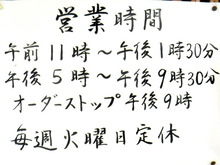 営業時間
午前11時～午後1時30分
午後5時～午後9時30分
オーダーストップ午後9時
毎週火曜日定休